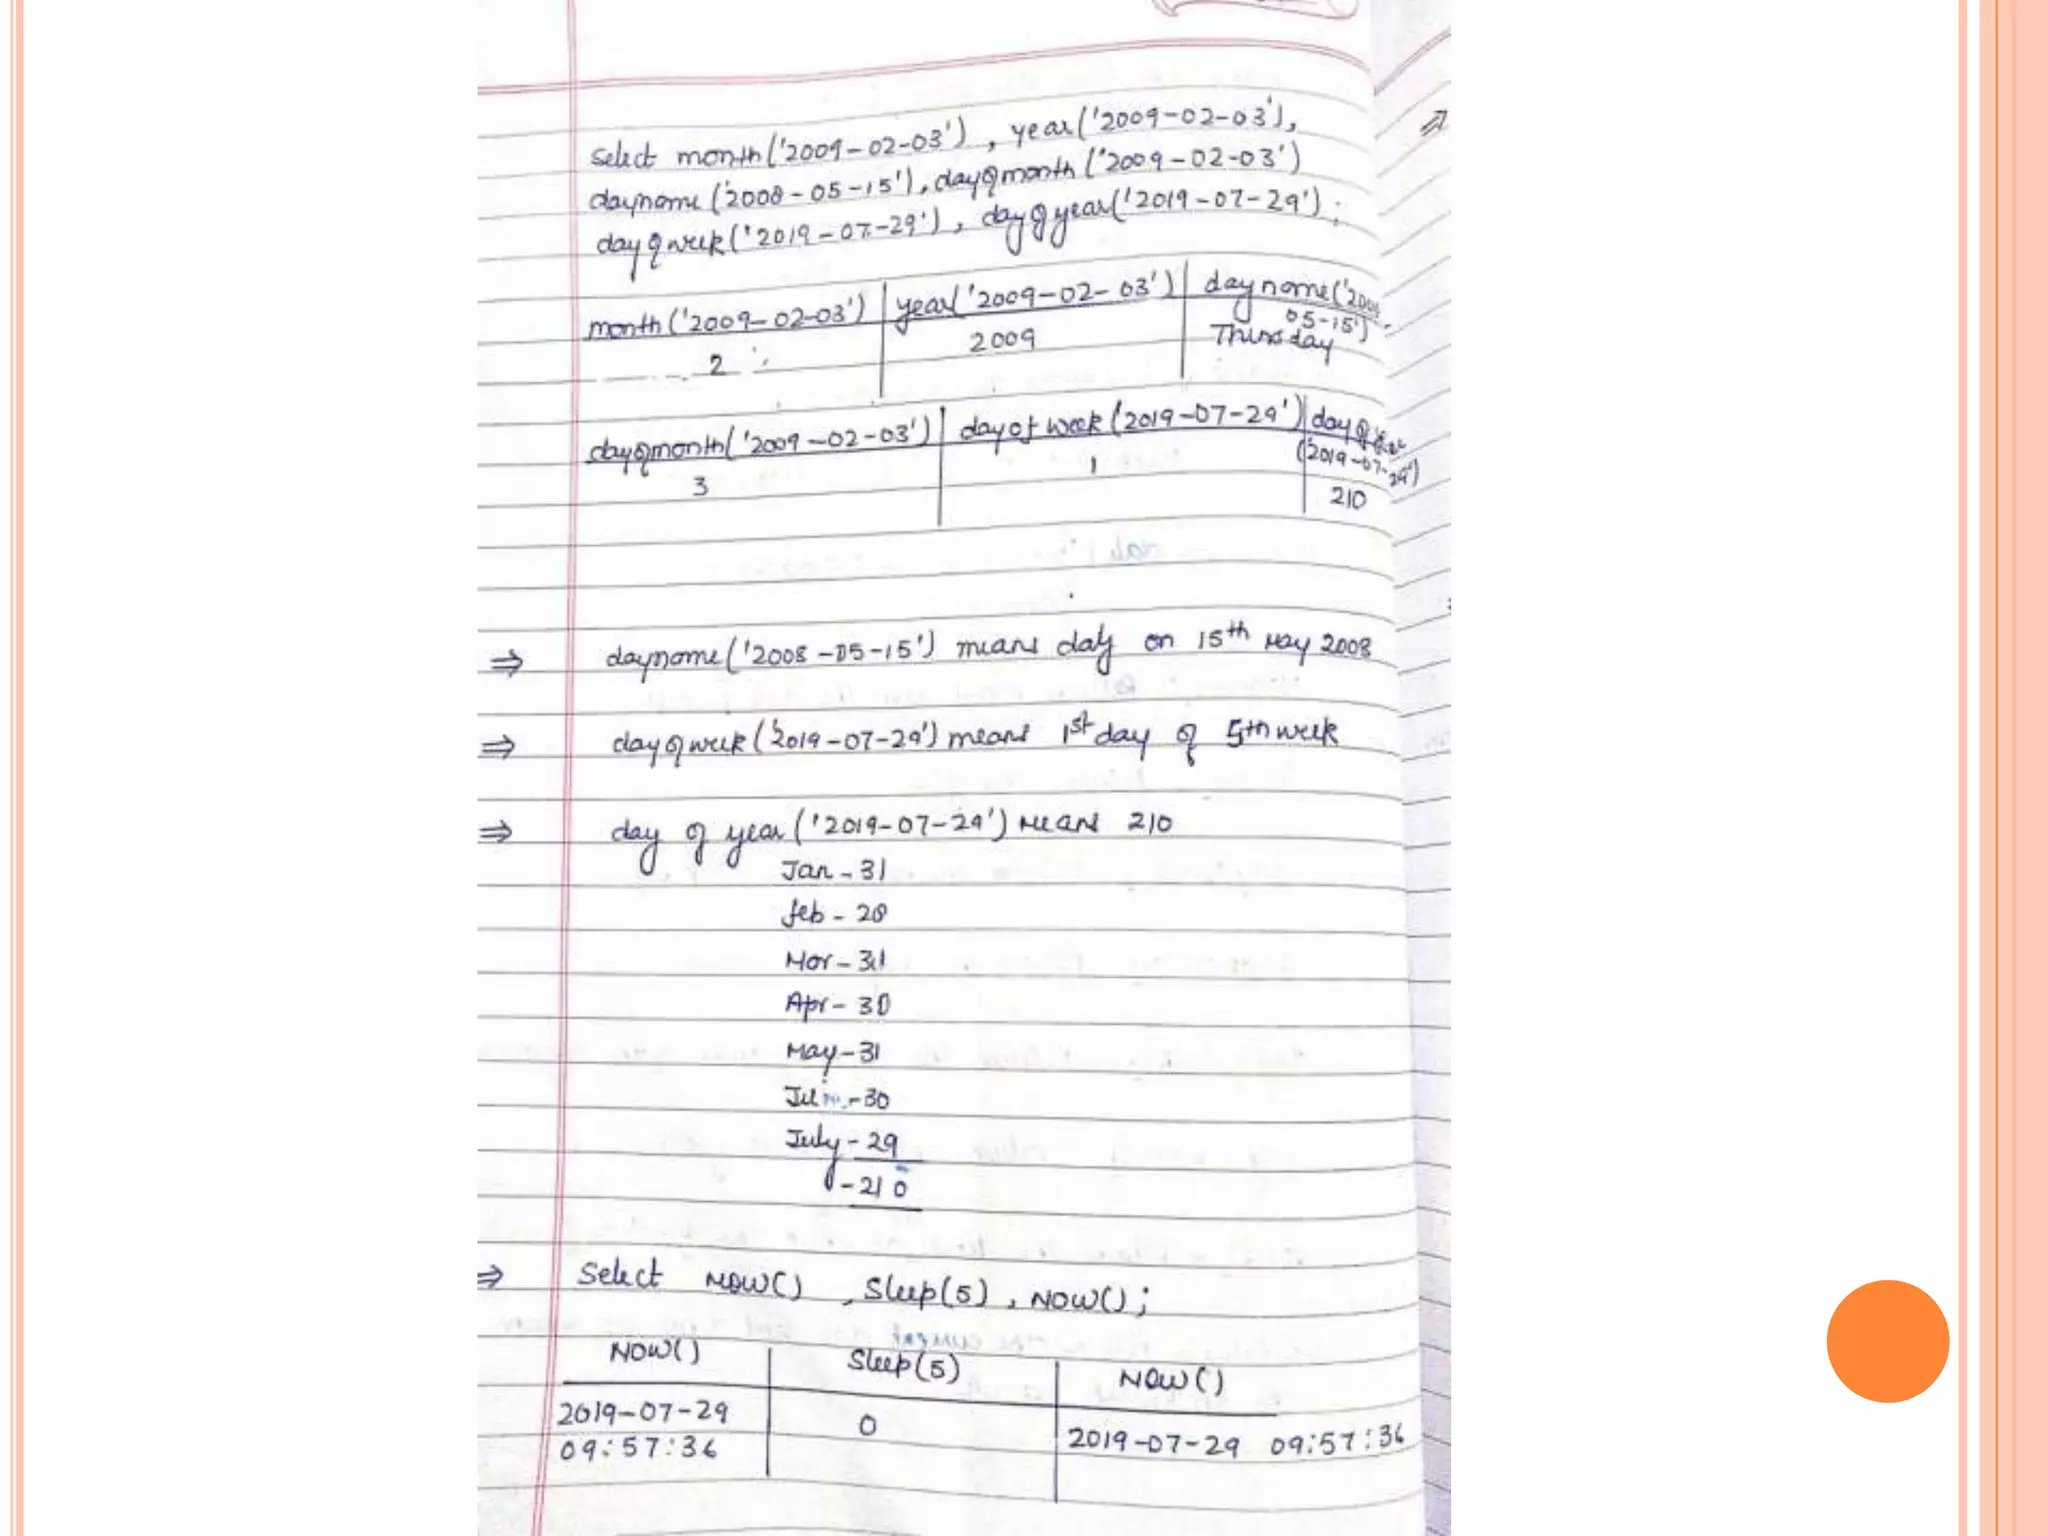 Select month('2009-02-03'), year('2009-02-03'),
dayname('2008-05-15'), dayofmonth('2009-02-03')
dayofweek('2019-07-29'), dayofyear('2019-07-29');
month('2009-02-03') year('2009-02-03') dayname('2008-
05-15')
2 2009 Thursday
dayofmonth('2009-02-03') dayof week('2019-07-29') dayofyear
('2019-07-29')
3 1 210
⇒ dayname('2008-05-15') means day on 15th May 2008
⇒ dayofweek('2019-07-29') means 1st day of 5th week
⇒ day of year('2019-07-29') means 210
Jan - 31
feb - 28
Mar - 31
Apr - 30
May - 31
Jun - 30
July - 29
- 210
⇒ Select NOW() , Sleep(5) , NOW();
NOW() Sleep(5) NOW()
2019-07-29 0 2019-07-29 09:57:36
09:57:36